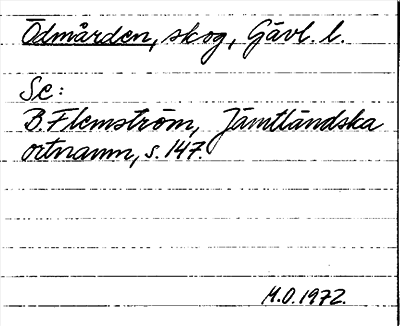 Ödmården, skog, Gävl. l.
Se:
B. Flemström, Jämtländska
ortnamn, s. 147.
M.O. 1972.